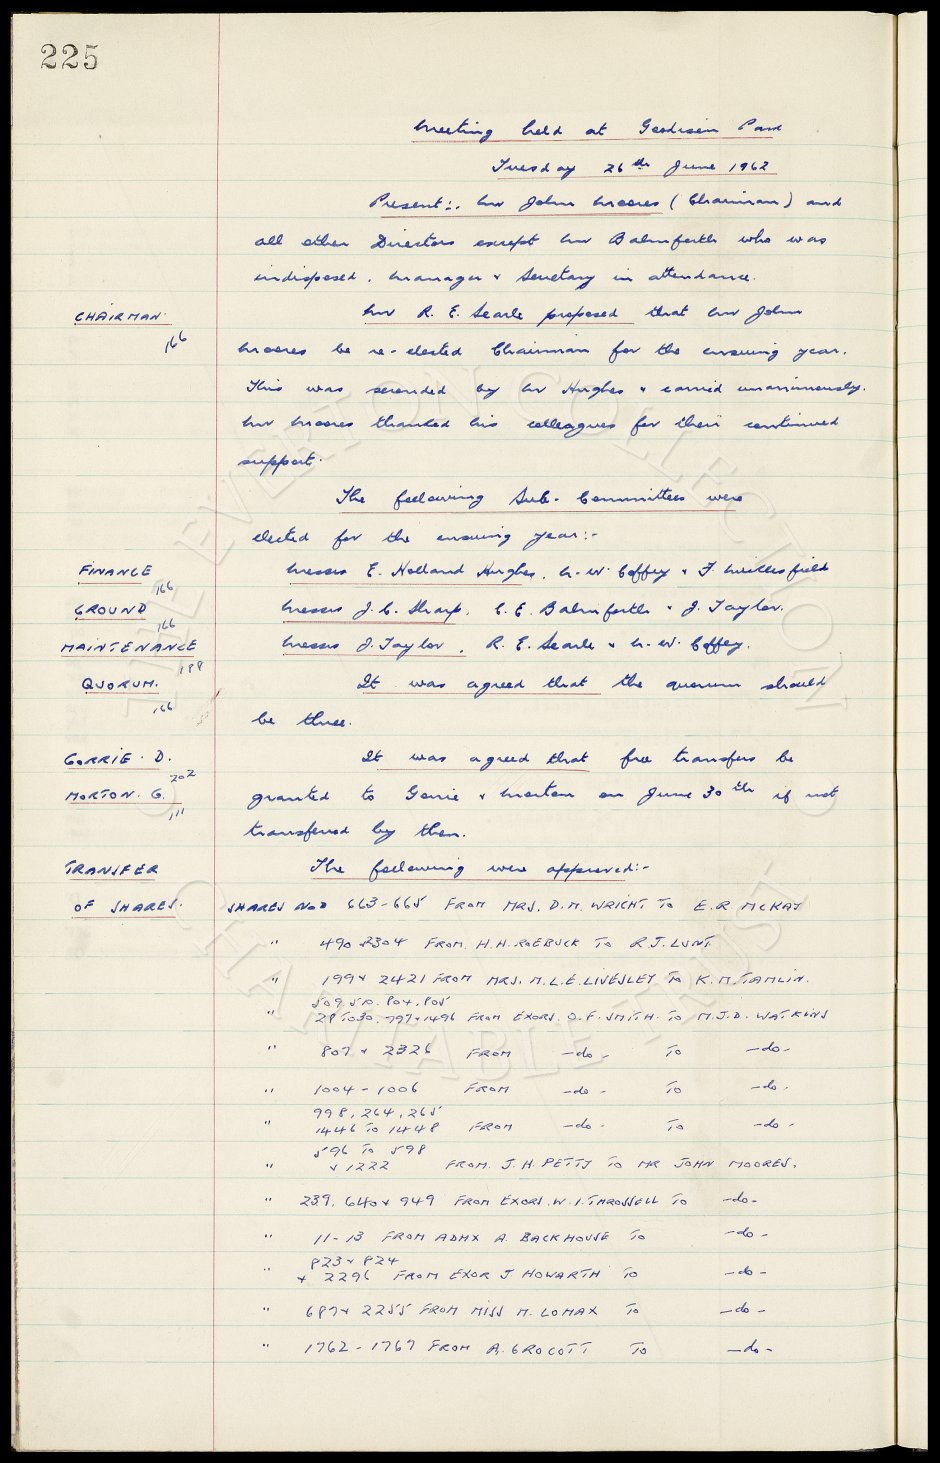 225
Meeting held at Goodison Park
Tuesday 26th June 1962
Present:. Mr John Moores (Chairman) and
all other Directors except Mr Balmforth who was
indisposed. Manager & Secretary in attendance.
CHAIRMAN. Mr R. E. Searle proposed that Mr John
166
Moores be re-elected Chairman for the ensuing year.
This was seconded by Mr Hughes & carried unanimously.
Mr Moores thanked his colleagues for their continued
support.
The following Sub-Committees were
elected for the ensuing year:-
FINANCE Messrs E. Holland Hughes, N. W. Coffey & F. Micklesfield
166
GROUND Messrs J. C. Sharp, C. E. Balmforth & J. Taylor.
166
MAINTENANCE Messrs J. Taylor, R. E. Searle & N. W. Coffey.
188
QUORUM. It was agreed that the quorum should
166
be three.
GORRIE. D. It was agreed that free transfers be
202
MORTON. G. granted to Gorrie & Morton on June 30th if not
111
transferred by then.
TRANSFER The following were approved:-
OF SHARES. SHARES NOD 663-665 FROM MRS. D.M. WRIGHT TO E.R. MCKAY
" 490 & 2304 FROM H.H. ROEBUCK TO R.J. LUNT
" 199 & 2421 FROM MRS. M.L.E. LIVESLEY TO K.M. TAMLIN.
509, 510, 804, 805
" 28 TO 30, 797 & 1496 FROM EXORS. O.F. SMITH. TO M.J.D. WATKINS
" 807 & 2326 FROM -do- TO -do-
" 1004-1006 FROM -do- TO -do-
998, 264, 265
" 1446 TO 1448 FROM -do- TO -do-
596 TO 598
" & 1222 FROM. J.H. PETTY TO MR JOHN MOORES.
" 239, 640 & 949 FROM EXORS. W.I. THROSSELL TO -do-
" 11-13 FROM ADMX A. BACKHOUSE TO -do-
823 & 824
" & 2296 FROM EXOR J HOWARTH TO -do-
" 687 & 2255 FROM MISS M. LOMAX TO -do-
" 1762-1767 FROM A. GROCOTT TO -do-
THE EVERTON COLLECTION
CHARITABLE TRUST